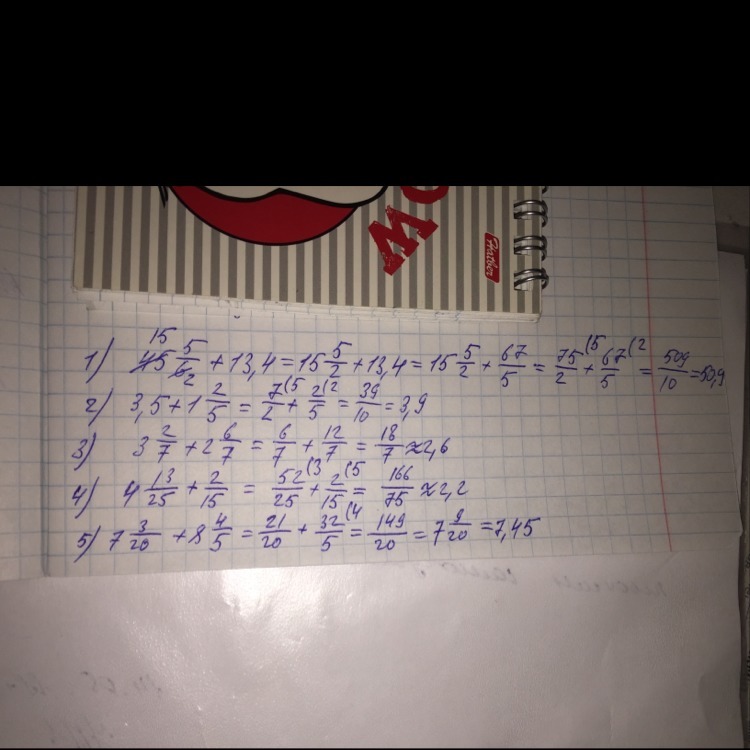 WOW
Hatber
1) 15 45 5/6 2 + 13,4 = 15 5/2 + 13,4 = 15 5/2 + 67/5 = 75/2 (5 + 67/5 (2 = 509/10 = 50,9
2) 3,5 + 1 2/5 = 7/2 (5 + 2/5 (2 = 39/10 = 3,9
3) 3 2/7 + 2 6/7 = 6/7 + 12/7 = 18/7 ≈ 2,6
4) 4 13/25 + 2/15 = 52/25 (3 + 2/15 (5 = 166/75 ≈ 2,2
5) 7 3/20 + 8 4/5 = 21/20 + 32/5 (4 = 149/20 = 7 9/20 = 7,45